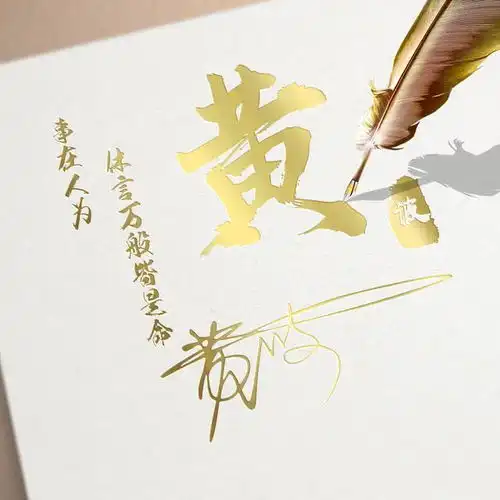 事在人为
休言万般皆是命
黄
波